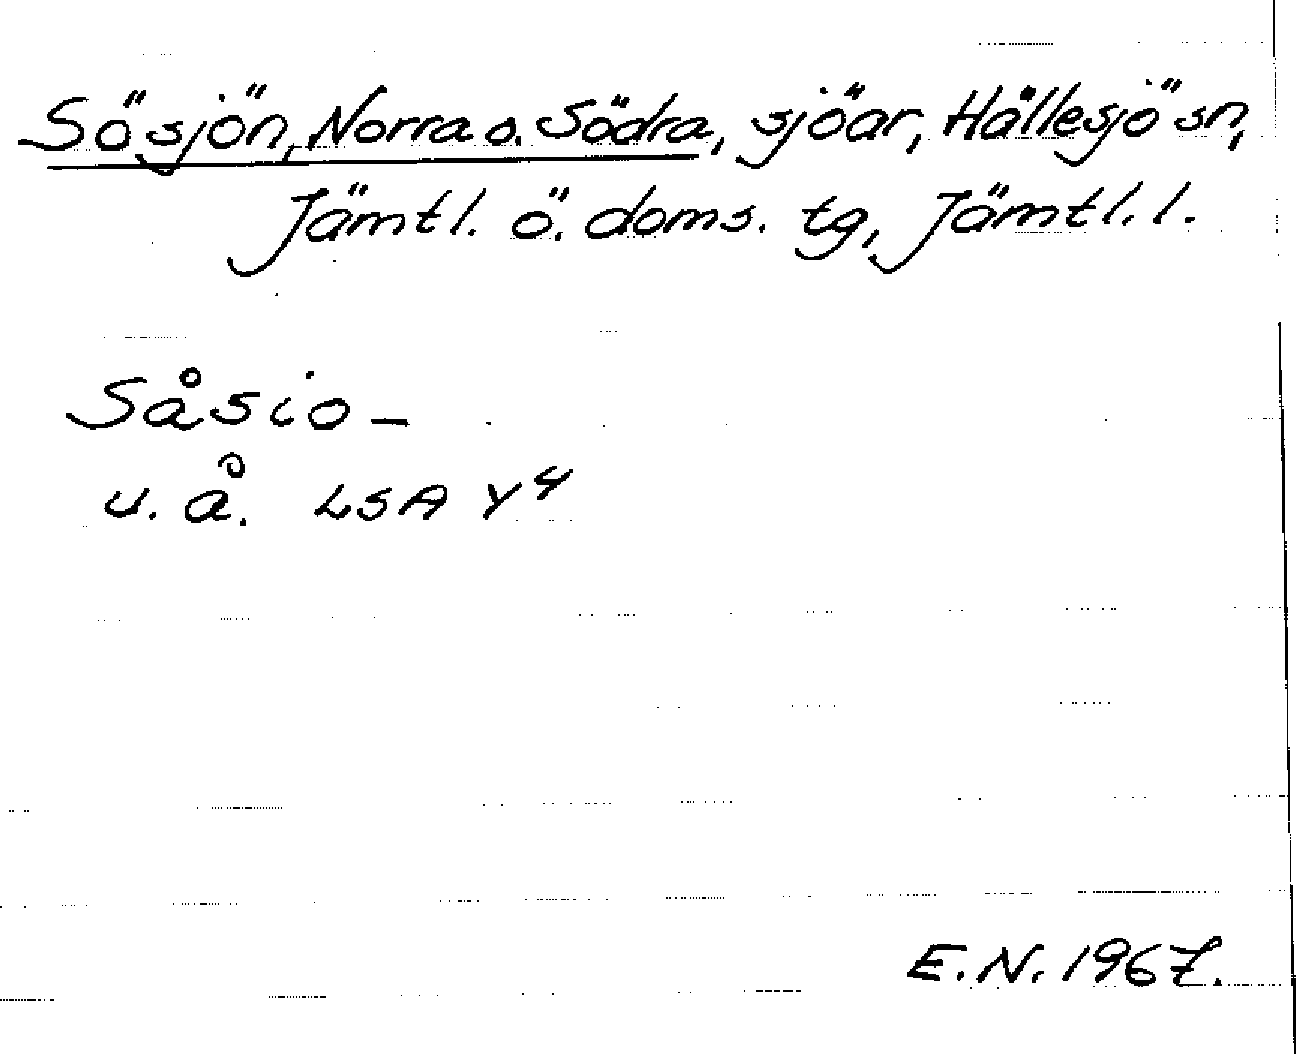 Sösjön, Norra o. Södra, sjöar, Hällesjö sn,
Jämtl. ö. doms. tg, Jämtl. l.
Såsio –
u. å. LSA Y4
E.N. 1967.